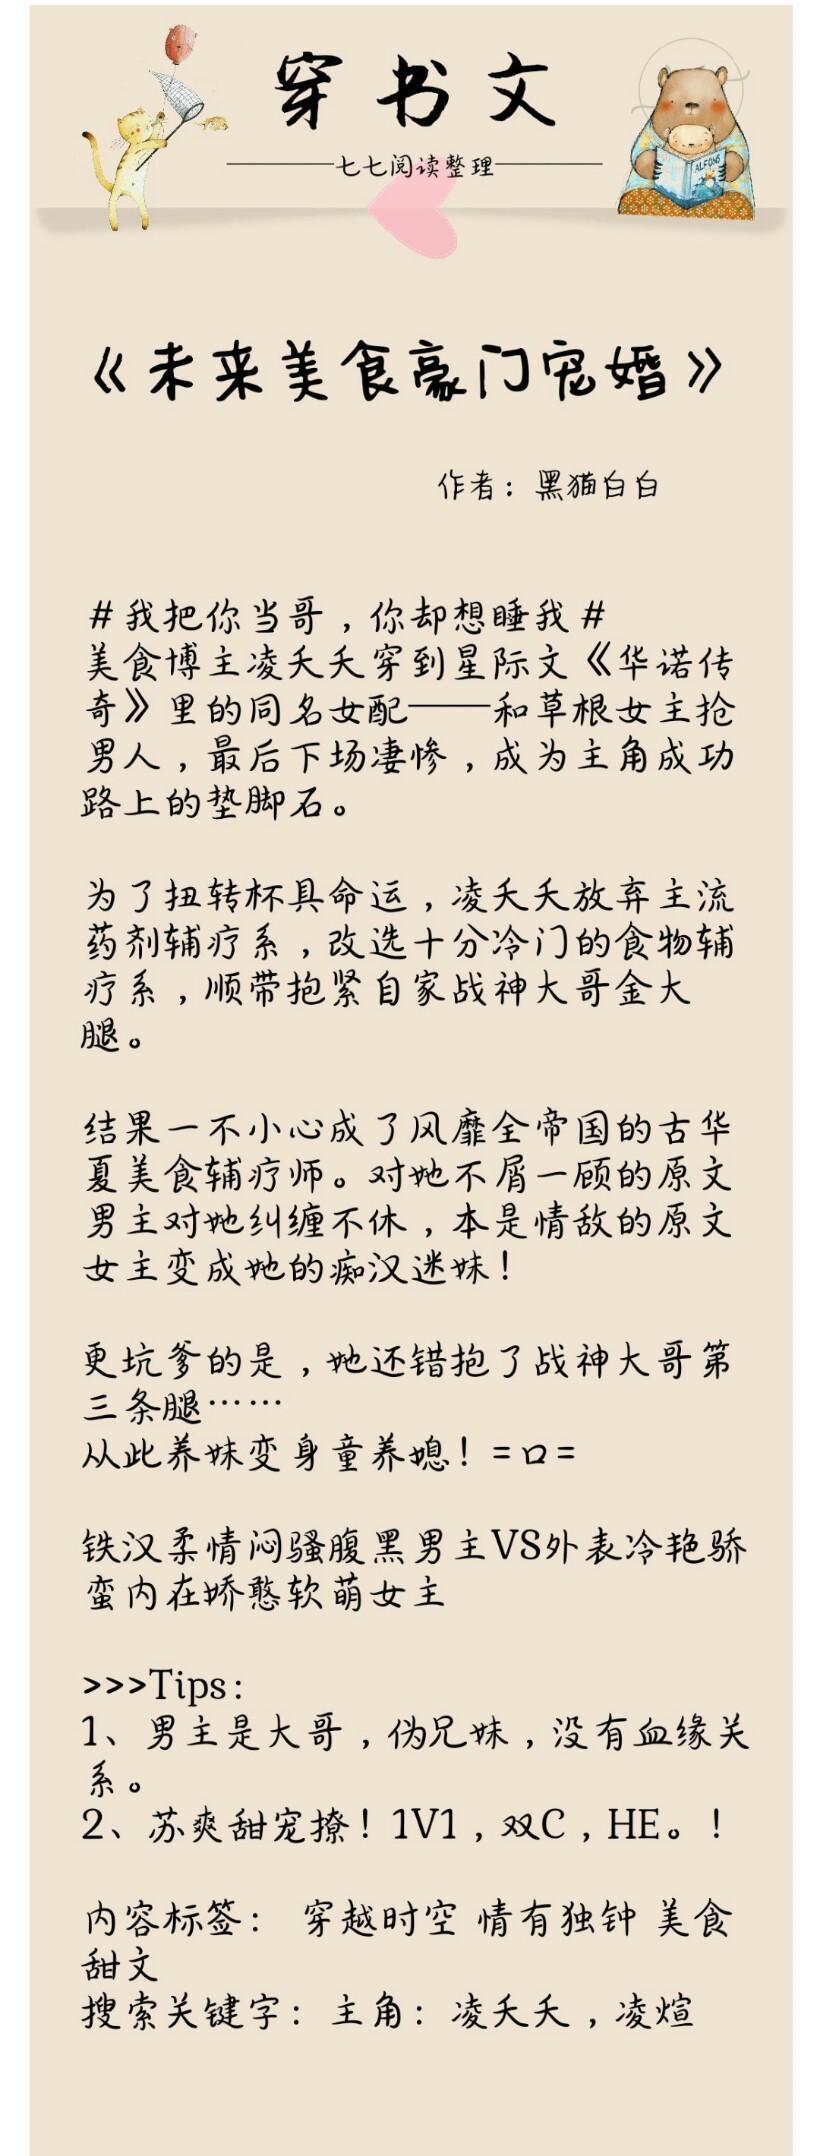 穿书文
七七阅读整理
ALFONS
《未来美食豪门宠婚》
作者：黑猫白白
#我把你当哥，你却想睡我#
美食博主凌夭夭穿到星际文《华诺传
奇》里的同名女配——和草根女主抢
男人，最后下场凄惨，成为主角成功
路上的垫脚石。
为了扭转杯具命运，凌夭夭放弃主流
药剂辅疗系，改选十分冷门的食物辅
疗系，顺带抱紧自家战神大哥金大
腿。
结果一不小心成了风靡全帝国的古华
夏美食辅疗师。对她不屑一顾的原文
男主对她纠缠不休，本是情敌的原文
女主变成她的痴汉迷妹！
更坑爹的是，她还错抱了战神大哥第
三条腿……
从此养妹变身童养媳！=口=
铁汉柔情闷骚腹黑男主VS外表冷艳骄
蛮内在娇憨软萌女主
>>>Tips：
1、男主是大哥，伪兄妹，没有血缘关
系。
2、苏爽甜宠撩！1V1，双C，HE。！
内容标签： 穿越时空 情有独钟 美食
甜文
搜索关键字：主角：凌夭夭，凌煊